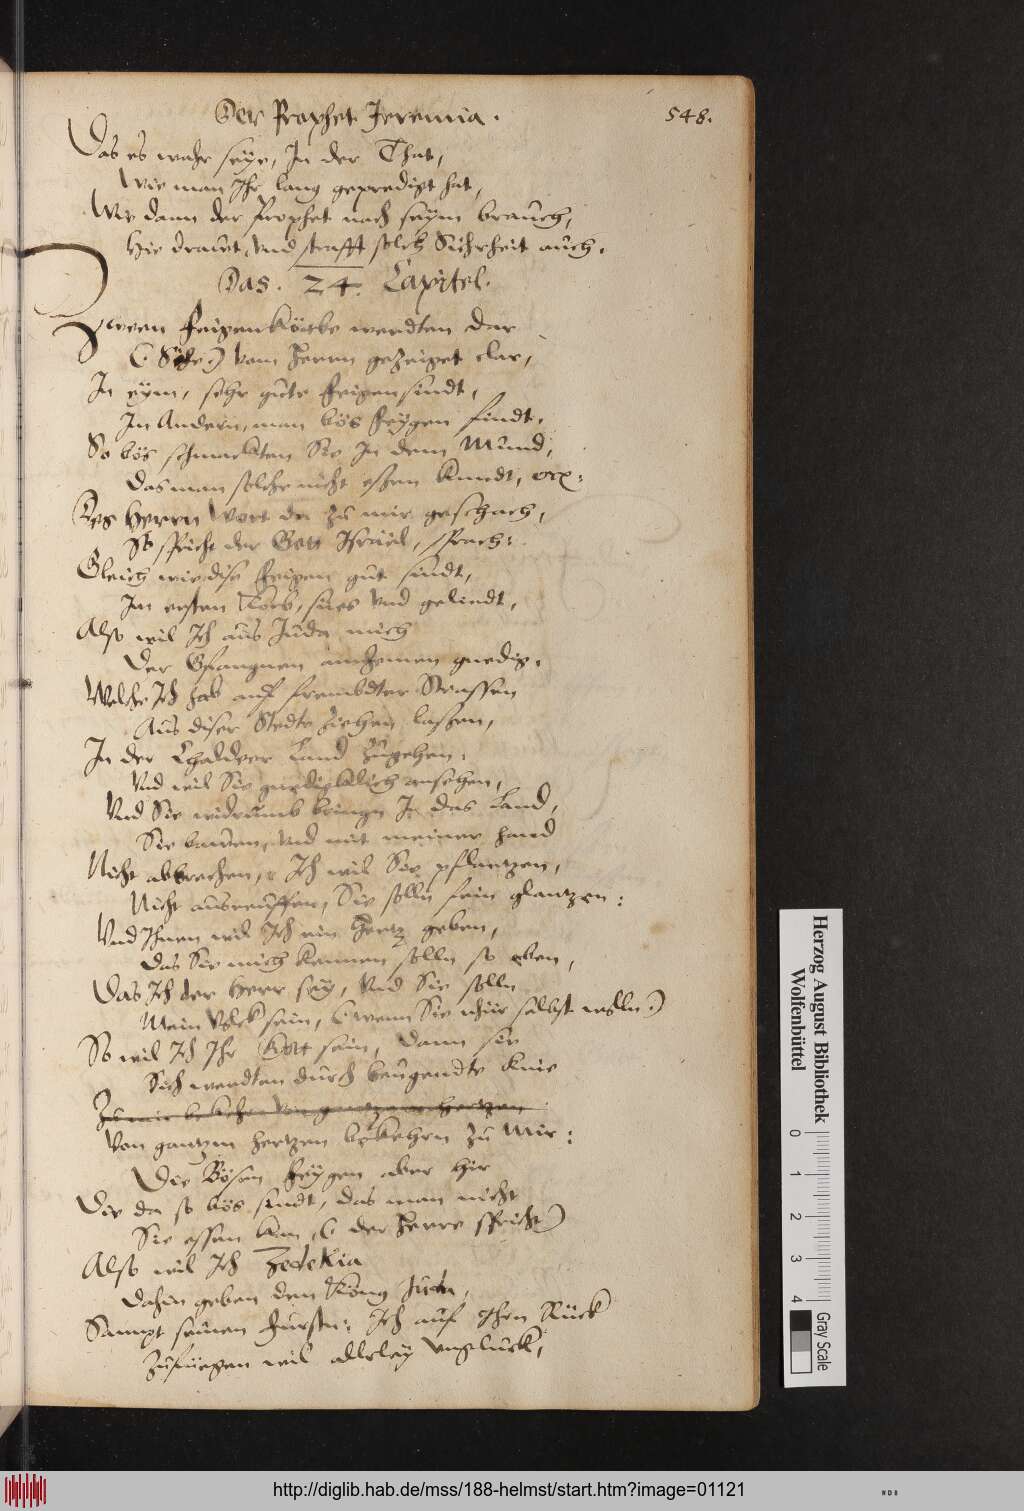 Der Prophet Jeremia.
548.
Das es wahr seye, In der That,
Wie man Ihr lang gepredigt hat,
Wie dann der Prophet nach seym brauch,
Hie drauet, Vnd strafft solch Sichrheit auch.
Das. 24. Capitel.
Zween Feigenkörbe werdten dar
(: Sihe :) vom Herrn gezeiget clar,
In eym, sehr gute Feigen sindt,
In Andern, man bös Feygen findt,
So bös schmackten Sie In dem Mund,
Das man solche nicht essen kundt,
Des Herrn Wort da zu mir geschach,
So spricht der Gott Israel, sprach:
Gleich wie dise Feigen gut sindt,
Im ersten Korb, sues Vnd gelindt,
Also wil Ich aus Juda mich
Der Gfangnen annehmen gnedig.
Welche Ich hab auf frembdter Strassen
Aus diser Stedte ziehen lassen,
In der Chaldeer Land zugehen.
Vnd wil Sie gnedigklich ansehen,
Vnd Sie widrumb bringn In das Land,
Sie bawen, Vnd mit meiner Hand
Nicht abbrechen, Ich wil Sie pflantzen,
Nicht ausreuffen, Sie solln fein glantzen:
Vnd Ihnen wil Ich ein Hertz geben,
Das Sie mich kennen solln so eben,
Das Ich der Herr sey, Vnd Sie solln
Mein Volck sein, (: wenn Sie nhur selbst wolln :)
So wil Ich Ihr Gott sein, dann sie
Sich werdten durch beugendte knie
Zu mir bekehrn Von gantzem Hertzen
Von gantzm Hertzen bekehrn zu Mir:
Die Bösen Feygen aber hir
Die da so bös sindt, das man nicht
Sie essen kan, (: der Herre spricht :)
Also wil Ich Zedekia
Dahin geben den König Juda,
Sampt seinen Fursten: Ich auf Ihrn Rück
Zufuegen wil allerley Vngluck,
Herzog August Bibliothek
Wolfenbüttel
0 1 2 3 4
Gray Scale
http://diglib.hab.de/mss/188-helmst/start.htm?image=01121